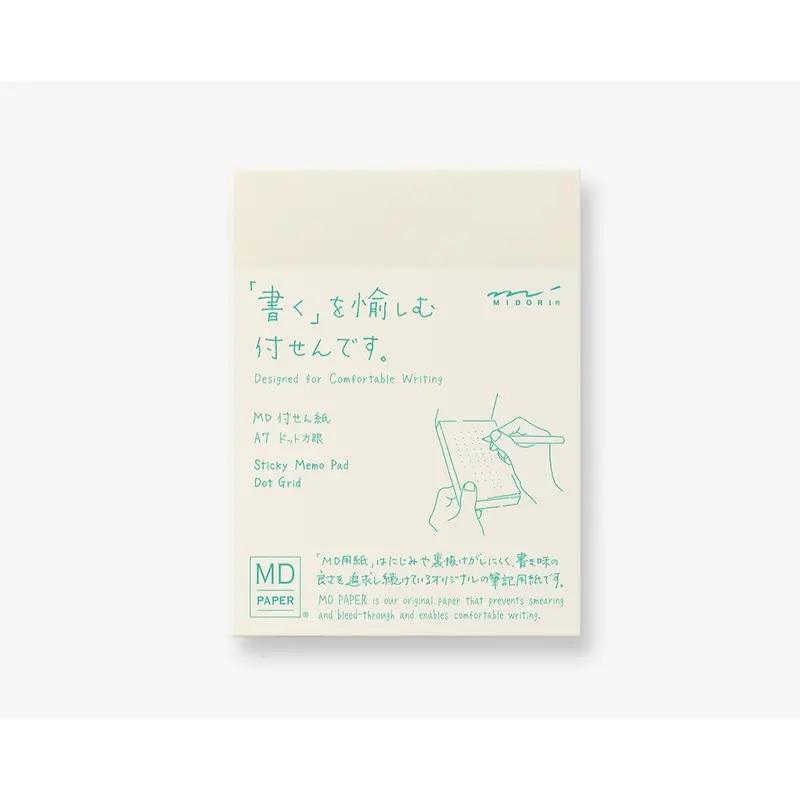 「書く」を愉しむ
付せんです。
Designed for Comfortable Writing
MIDORI®
MD 付せん紙
A7 ドット方眼
Sticky Memo Pad
Dot Grid
MD
PAPER®
「MD用紙」はにじみや裏抜けがしにくく、書き味の
良さを追求し続けているオリジナルの筆記用紙です。
MD PAPER is our original paper that prevents smearing
and bleed-through and enables comfortable writing.